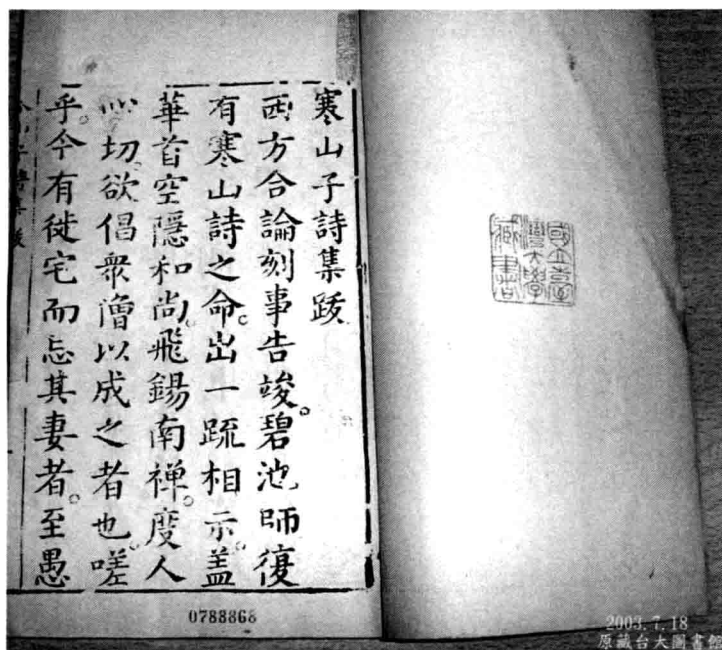 寒山子詩集跋
西方合論刻事告竣。碧池師復
有寒山詩之命。出一疏相示。盖
華首空隱和尚。飛錫南禅。度人
心切。欲倡衆僧以成之者也。嗟
乎。今有徙宅而忘其妻者。至愚
國立臺
灣大學
藏書
0788868
2003.7.18
原藏台大圖書館